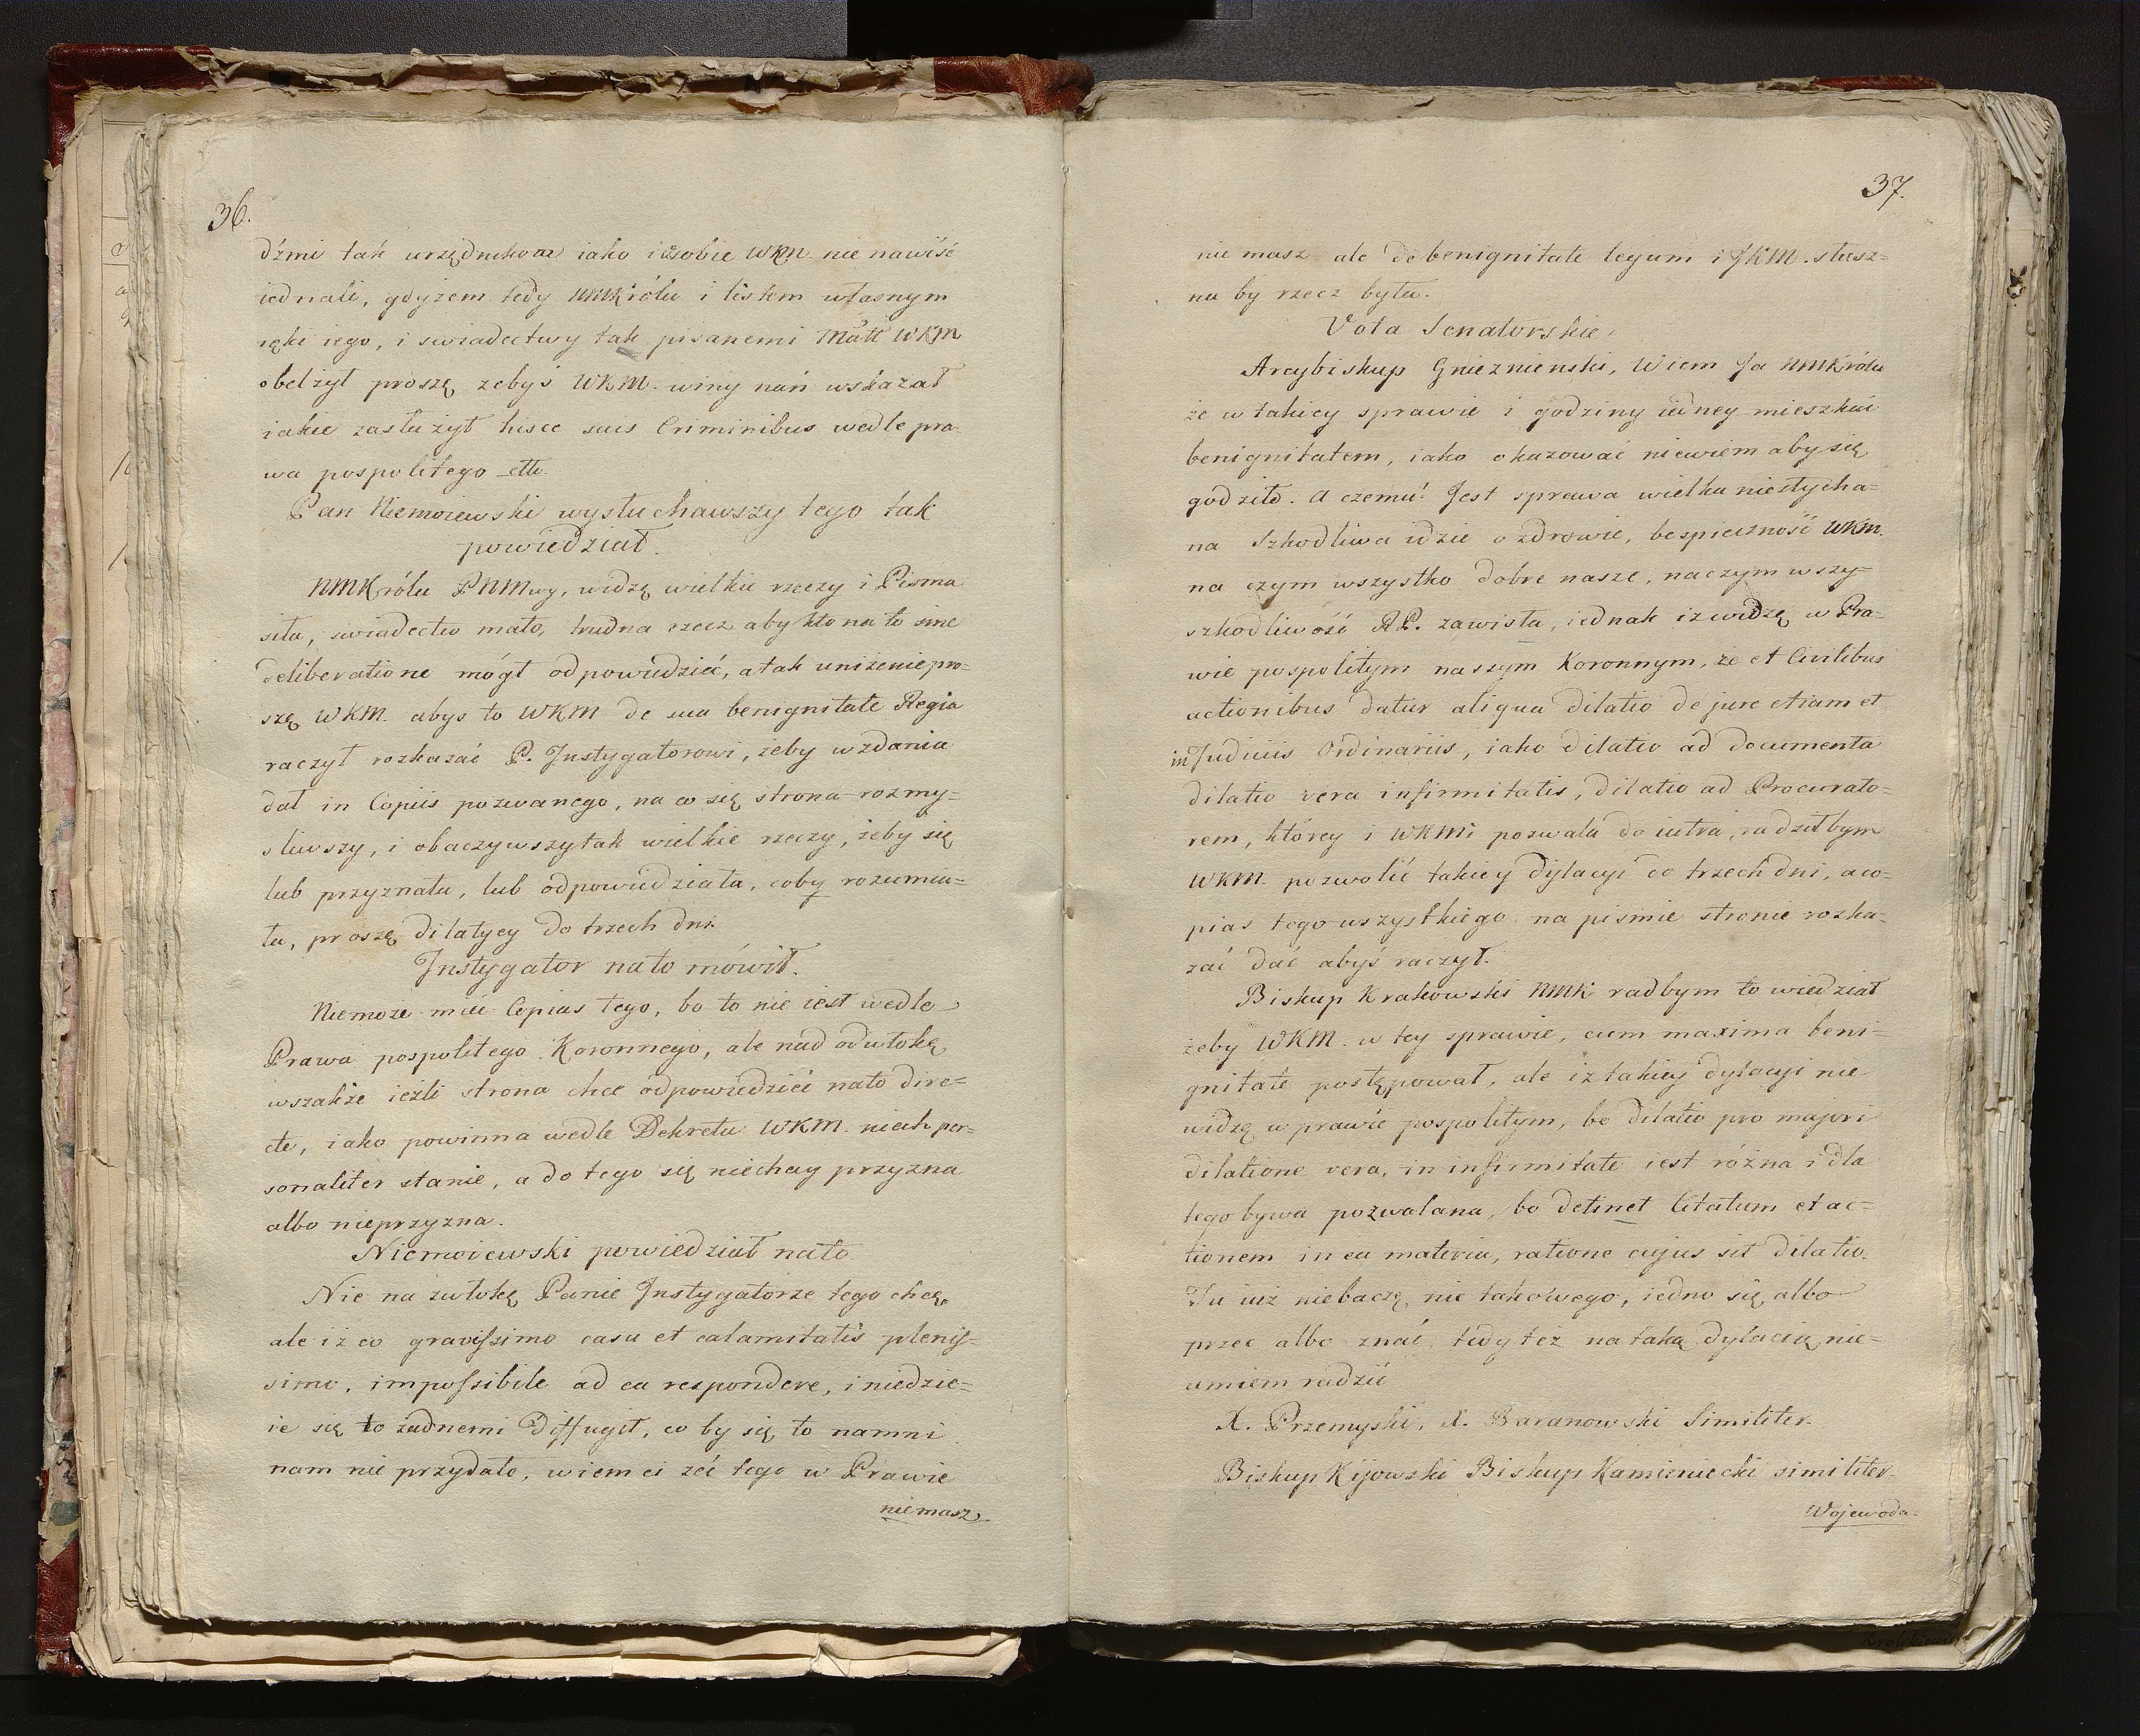 36.
dźmi tak urzędnikom iako i osobie WKM. nienawiść
iednali, gdyżem tedy NMKrólu i listem własnym
ręki iego, i swiadectwy tak pisanemi Matt WKM
obelżył proszę zebyś WKM. winy nań wskazał
iakie zasłużył hisce suis Criminibus wedle pra-
wa pospolitego ette
Pan Niemoiewski wysłuchawszy tego tak
powiedział.
NMKrólu PNMwy, widzę wielkie rzeczy i Pisma
siła, swiadectw mało, trudna rzecz aby kto na to sine
deliberatione mógł odpowiedzieć, a tak uniżenie pro-
szę WKM. abyś to WKM de sua benignitate Regia
raczył rozkazać P. Instygatorowi, żeby wzdania
dał in Copiis pozwanego, na co się strona rozmy-
sliwszy, i obaczywszy tak wielkie rzeczy, żeby się
lub przyznała, lub odpowiedziała, coby rozumia-
ła, proszę dilatycy do trzech dni.
Instygator na to mówił.
Niemoże mieć Copias tego, bo to nie iest wedle
Prawa pospolitego Koronnego, ale nad odwłokę
wszakże ieżli strona chce odpowiedzieć na to dire-
cte, iako powinna wedle Dekretu WKM. niech per-
sonaliter stanie, a do tego się niechay przyzna
albo nieprzyzna.
Niemoiewski powiedział na to
Nie na zwłokę Panie Instygatorze tego chcę,
ale iż co gravissimo casu et calamitatis plenis-
simo, impossibile ad ea respondere, i niedzie-
ie się to żadnemi diffugit, co by się to namni
nam nie przydało, wiem ci zeć tego w Prawie
niemasz
37.
nie masz ale de benignitate legum i JKM. słusz-
na by rzecz była.
Vota Senatorskie
Arcybiskup Gnieznienski, Wiem Ja NMKrólu
że w takiey sprawie i godziny iedney mieszkać
benignitatem, iako okazować niewiem aby się
godziło. A czemu? Jest sprawa wielka niesłycha-
na szkodliwa idzie o zdrowie, bespieczność WKM.
na czym wszystko dobre nasze, na czym wszy-
szkodliwość RP. zawisła, iednak iż widzę w Pra-
wie pospolitym naszym Koronnym, że et Civilibus
actionibus datur aliqua dilatio de jure etiam et
in Judiciis Ordinariis, iako dilatio ad documenta
dilatio vera infirmitatis, dilatio ad Procurato-
rem, którey i WKMi pozwala do iutra, radziłbym
WKM. pozwolić takiey dylacyi do trzech dni, a co-
pias tego wszystkiego na pismie stronie rozka-
zać dać abyś raczył.
Biskup Krakowski NMK radbym to wiedział
żeby WKM. w tey sprawie, cum maxima beni-
gnitate postępował, ale iż takiey dylacyi nie
widzę w prawie pospolitym, bo dilatio pro majori
dilatione vera, in infirmitate iest różna i dla
tego bywa pozwalana, bo detinet Citatum et ac-
tionem in ea materia, ratione cujus sit dilatio.
Tu iuż niebaczę nic takowego, iedno się albo
przec albo znać, tedy też na taką dylacią nie-
umiem radzić
X. Przemyski, X. Baranowski Similiter.
Biskup Kijowski Biskup Kamieniecki similiter.
Wojewoda